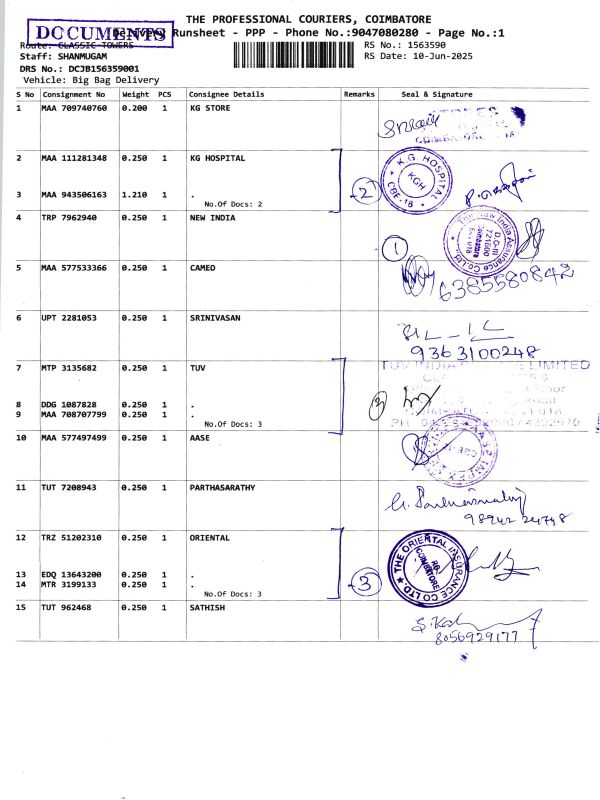 THE PROFESSIONAL COURIERS, COIMBATORE
DOCUMENTS
Delivery Runsheet - PPP - Phone No.:9047080280 - Page No.:1
Route: CLASSIC TOWERS
RS No.: 1563590
Staff: SHANMUGAM
RS Date: 10-Jun-2025
DRS No.: DCJB156359001
Vehicle: Big Bag Delivery
S No Consignment No Weight PCS Consignee Details Remarks Seal & Signature
1 MAA 709740760 0.200 1 KG STORE
2 MAA 111281348 0.250 1 KG HOSPITAL
K.G. HOSPITAL
KGH
CBE-18
2
3 MAA 943506163 1.210 1 .
No.Of Docs: 2
4 TRP 7962940 0.250 1 NEW INDIA
The New India Assurance Co Ltd
D.O-III
721600
1
5 MAA 577533366 0.250 1 CAMEO
6385580842
6 UPT 2281053 0.250 1 SRINIVASAN
9363100248
7 MTP 3135682 0.250 1 TUV
TUV INDIA LIMITED
8 DDG 1087828 0.250 1 .
9 MAA 708707799 0.250 1 .
No.Of Docs: 3
3
10 MAA 577497499 0.250 1 AASE
11 TUT 7208943 0.250 1 PARTHASARATHY
98942 24748
12 TRZ 51202310 0.250 1 ORIENTAL
THE ORIENTAL INSURANCE CO LTD.
COIMBATORE
13 EDQ 13643200 0.250 1 .
14 MTR 3199133 0.250 1 .
3
No.Of Docs: 3
15 TUT 962468 0.250 1 SATHISH
8056929177